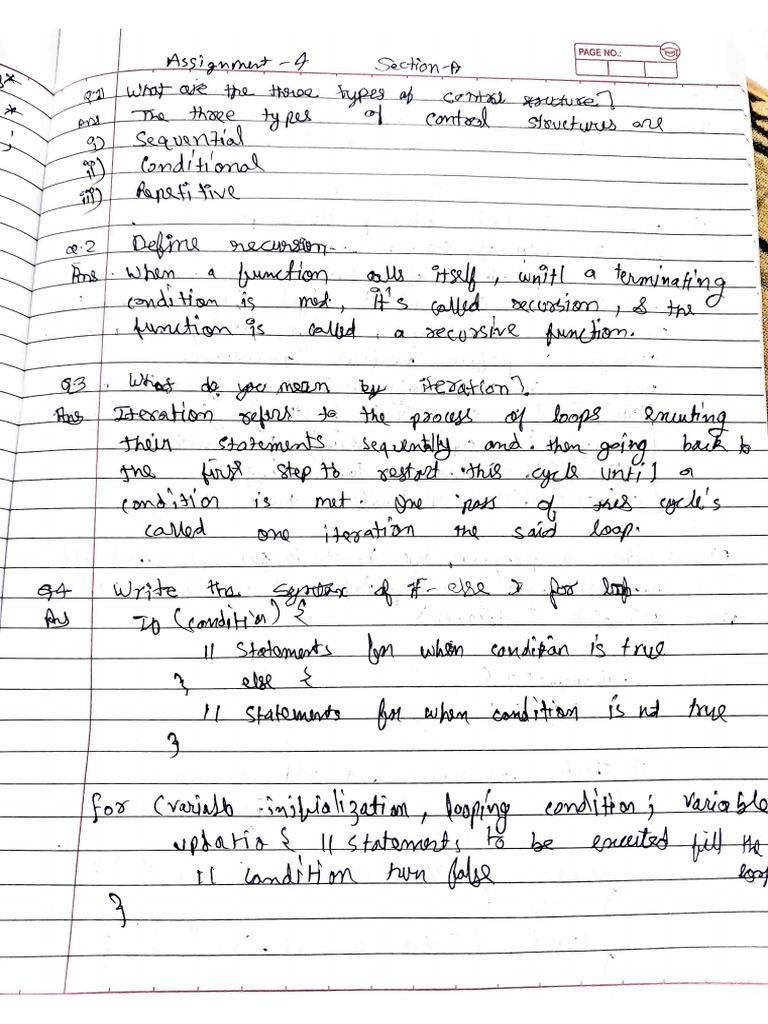 Assignment - 4 Section-A
PAGE NO.:
Q1 What are the three types of control structure?
Ans The three types of control structures are
i) Sequential
ii) Conditional
iii) Repetitive
Q.2 Define recursion.
Ans. When a function calls itself, unitl a terminating
condition is met, it's called recursion, & the
function is called a recursive function.
Q3. What do you mean by iteration?
Ans Iteration refers to the process of loops executing
their statements sequentally and then going back to
the first step to restart this cycle until a
condition is met. One pass of this cycle's
called one iteration the said loop.
Q4 Write the syntax of if-else & for loop.
Ans If (condition) {
// Statements for when condition is true
} else {
// statements for when condition is not true
}
for (variable initialization, looping condition; variable
updatio { // statements to be executed till the
// condition turn false loop
}